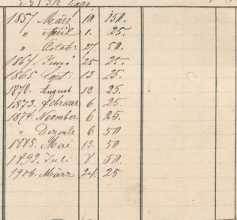 1857 März 10 150.
" April 1. 25.
" Octobr 27 50.
25 25.
1865 Sept 13 25.
1870. August 13 25.
1873. Februar 6 25.
1874 November 6 25
" 6 50
1885. Mai 13 50
1892. Juli 50.
1906. März 24. 25